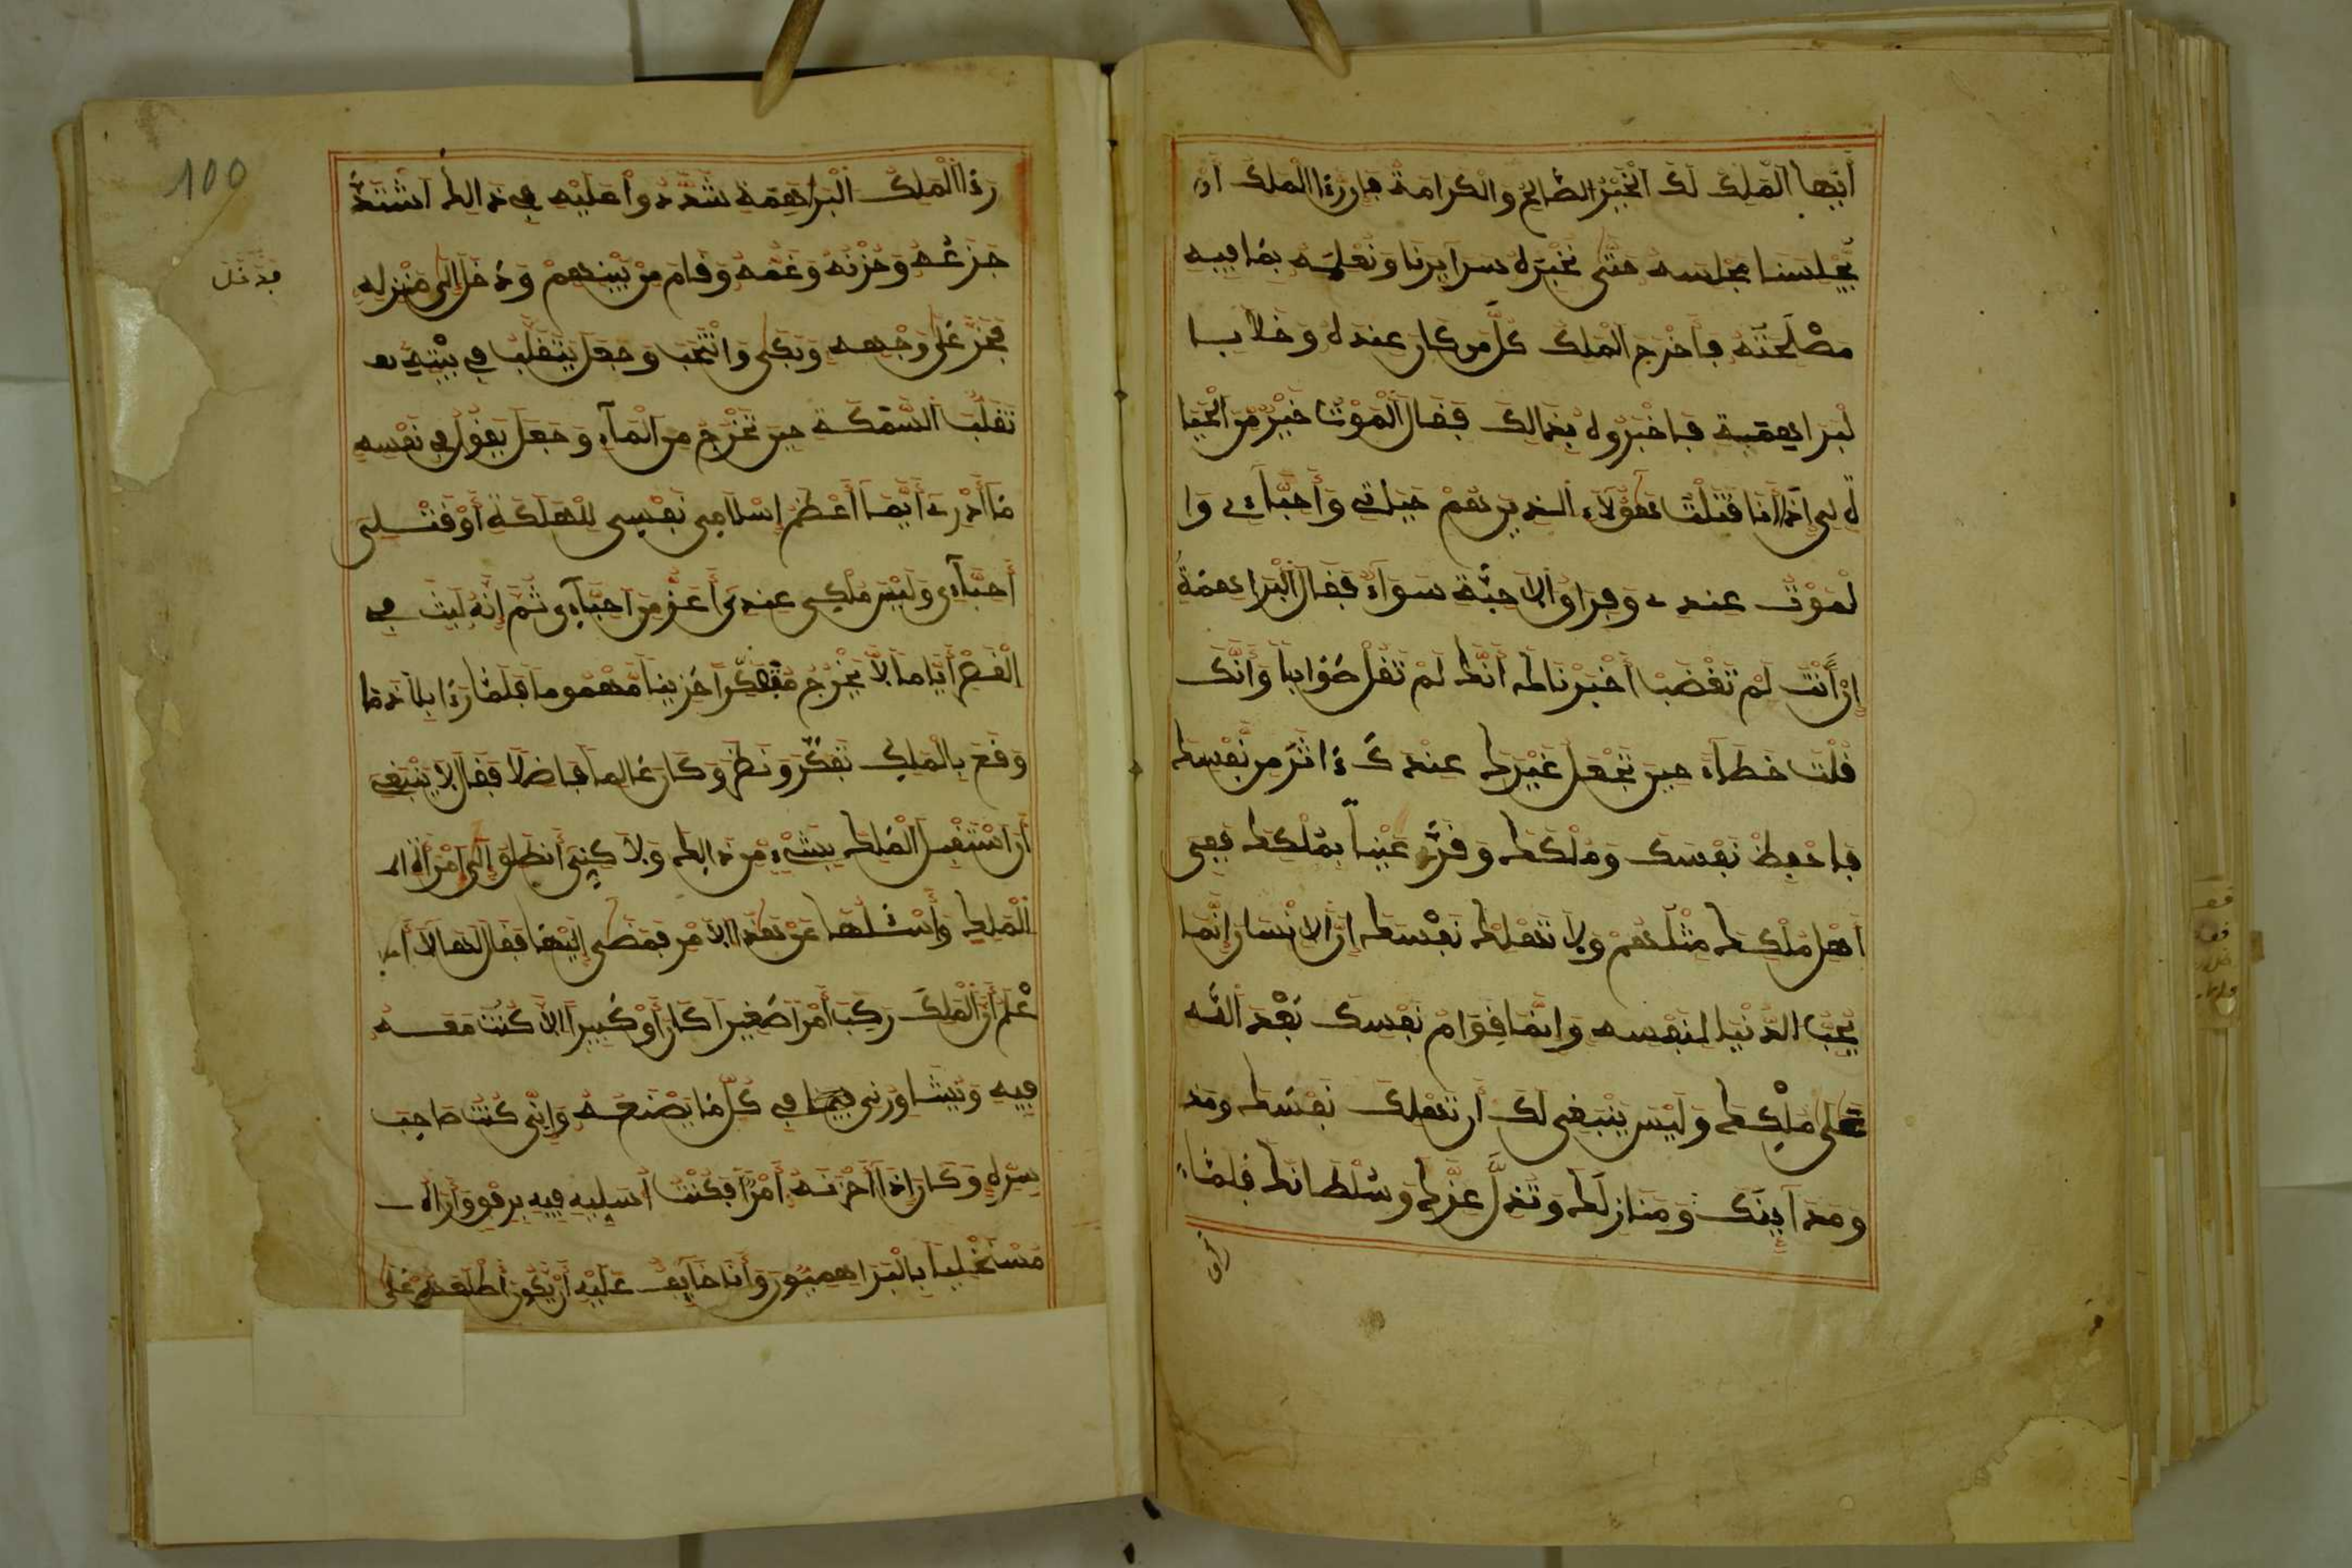 أيها الملك لك الخير الصالح والكرامة فإن رءا الملك أن
يجلسنا مجلسه حتى نخبره سرايرنا ونعلمه بما فيه
مصلحته فأخرج الملك كل من كان عنده وخلا با
لبراهمية فأخبروه بذالك فقال الموت خير من الحيا
ة لي إذا أنا قتلت هؤلاء الذين هم حياتي وأحباءي وا
لموت عندي وفراق الأحبة سواء فقال البراهمة
إن أنت لم تغضب أخبرناك أنك لم تقل صوابا وأنك
قلت خطاء حين تجعل غيرك عندك ءاثر من نفسك
فاحفظ نفسك وملكك وقر عينا بملكك ففي
أهل ملكك مثلهم ولا تهلك نفسك إن الإنسان إنما
يحب الدنيا لنفسه وإنما قوام نفسك بعد الله
على ملكك وليس ينبغي لك أن تهلك نفسك ومد
ومدآينك ومنازلك وتذل عزك وسلطانك فلما
رءا الملك البراهمة شددوا عليه في ذالك اشتد
جزعه وحزنه وغمه وقام من بينهم ودخل إلى منزله
فخر على وجهه وبكى وانتحب وجعل يتقلب في بيته
تقلب السمكة حين تخرج من الماء وجعل يقول في نفسه
ما أدري أيهما أعظم إسلامي نفسي للهلكة أو قتلي
أحباءي وليس ملكي عندي أعز من أحباءي ثم إنه لبث في
الغم أياما لا يخرج متفكرا حزينا مهموما فلما رءا بلاد ما
وقع بالملك تفكر ونظر وكان عالما فاضلا فقال لا ينبغي
أن أستقبل الملك بشيء من ذالك ولاكني أنطلق إلى امرأة
الملك وأسئلها عن هذا الأمر فمضى إليها فقال لها لا أ
علم أن الملك ركب أمرا صغيرا كان أو كبيرا إلا كنت معه
فيه ويشاورني في كل ما يصنعه وإني كنت صاحب
سره وكان إذا أحزنه أمرا فكنت أسليه فيه برفق وأراه
مستخليا بالبراهميون وأنا خايف عليه أن يكون أطلعهم على
فدخل
100